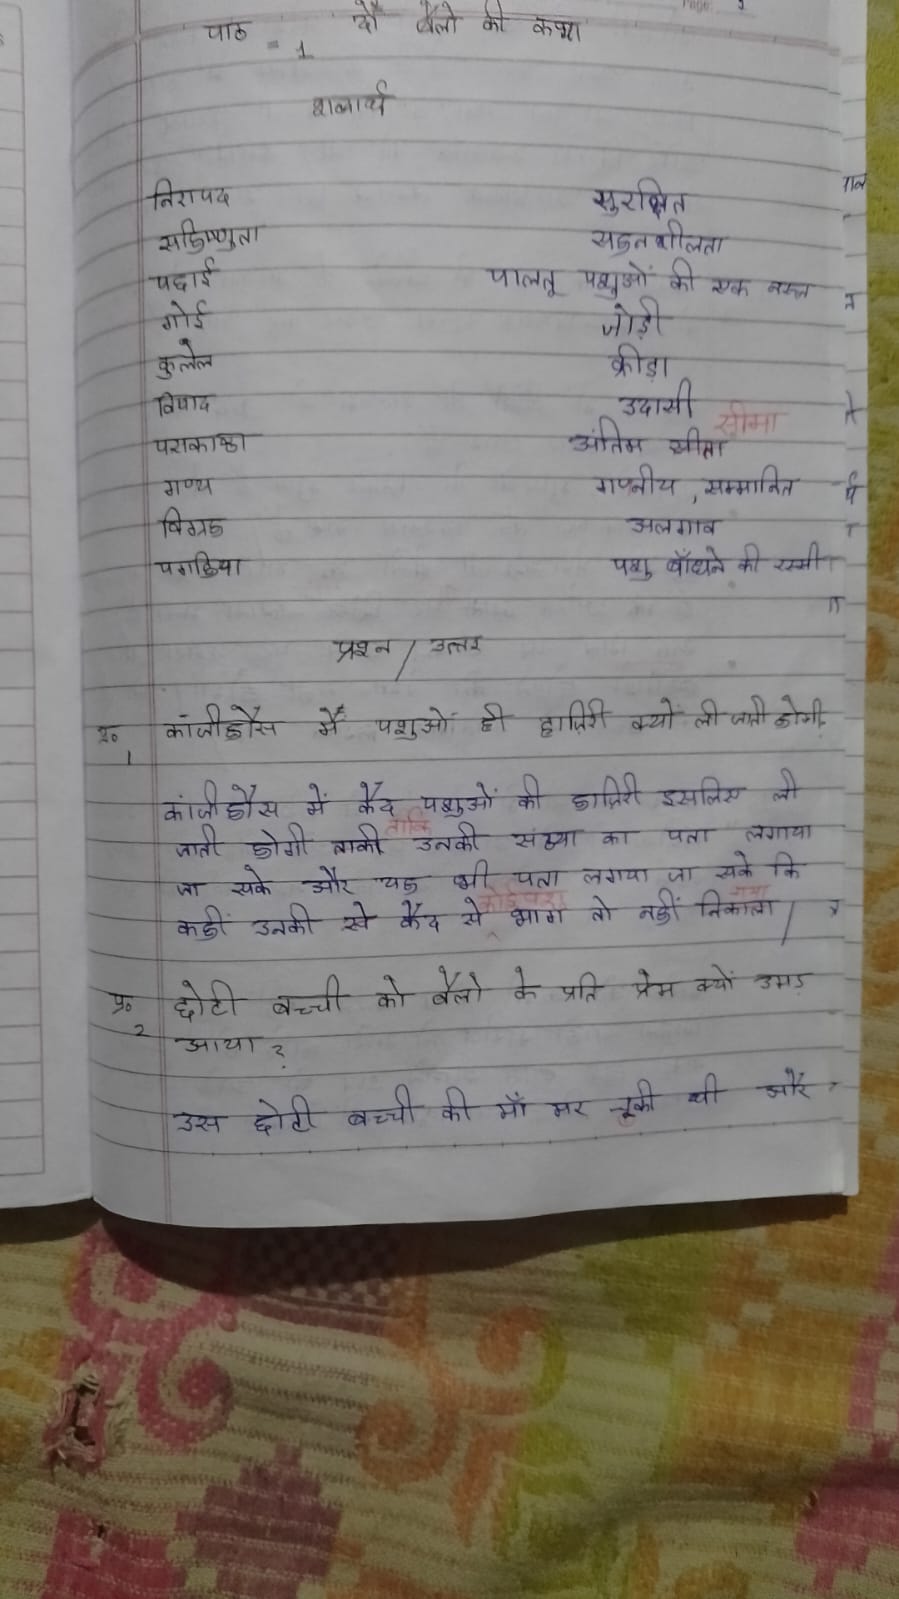 पाठ = 1 दो बैलो की कथा
शब्दार्थ
निरापद सुरक्षित
सहिष्णुता सहनशीलता
पछाई पालतू पशुओं की एक नस्ल
गोई जोड़ी
कुलेल क्रीड़ा
विषाद उदासी
सीमा
पराकाष्ठा अंतिम
गण्य गणनीय, सम्मानित
विग्रह अलगाव
पगहिया पशु बाँधने की रस्सी
प्रश्न / उत्तर
प्र० 1 कांजीहौस में पशुओं ही हाज़िरी क्यों ली जाती होगी
कांजीहौस में कैद पशुओं की हाज़िरी इसलिए ली
ताकि
जाती होगी ताकी उनकी संख्या का पता लगाया
जा सके और यह भी पता लगाया जा सके कि
कोई पशु गया
कहीं उनकी कैद से भाग तो नहीं निकाला /
प्र० 2 छोटी बच्ची को बैलो के प्रति प्रेम क्यों उमड़
आया ?
उस छोटी बच्ची की माँ मर चुकी थी और